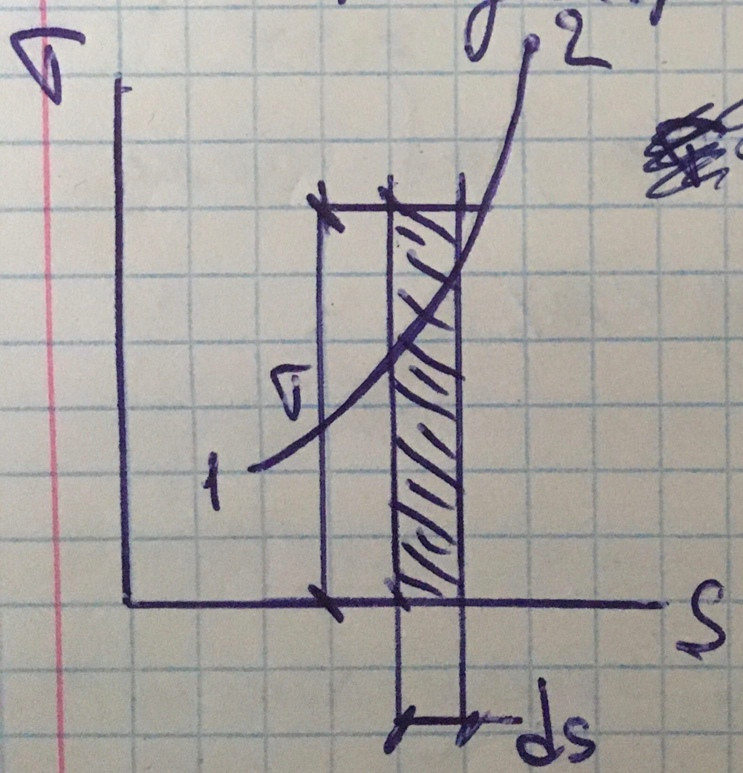 T
2
T
1
S
ds